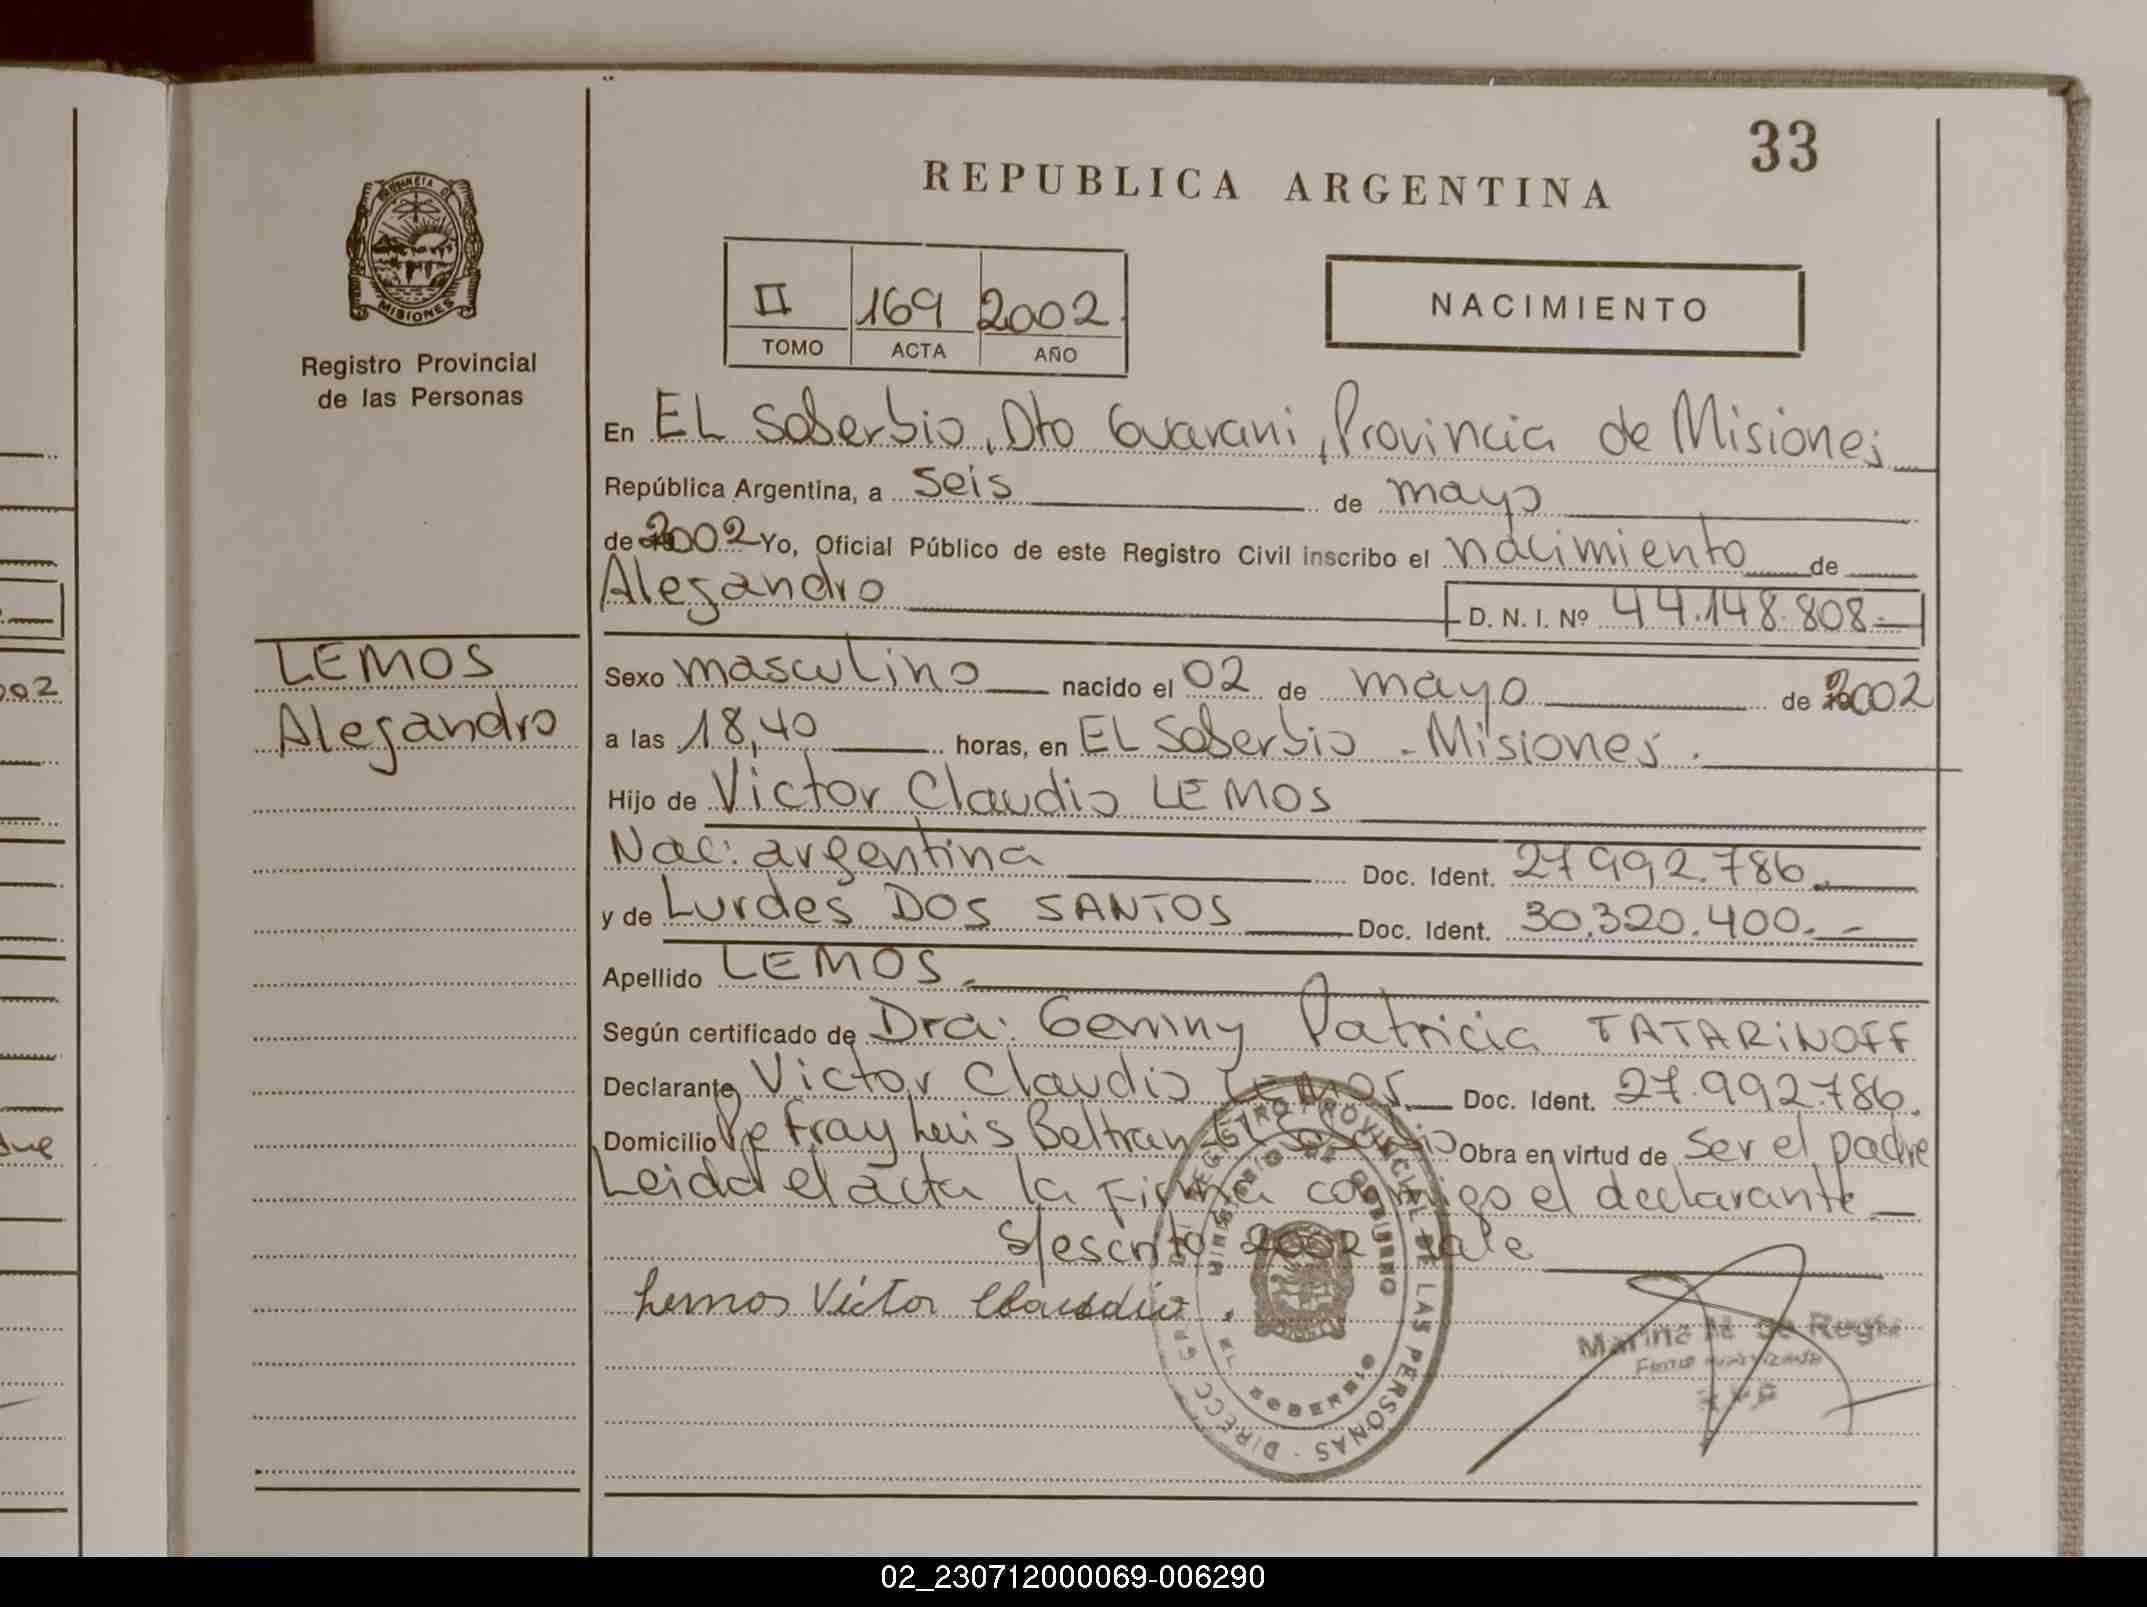 33
REPUBLICA ARGENTINA
PROVINCIA DE MISIONES
Registro Provincial
de las Personas
II 169 2002
TOMO ACTA AÑO
NACIMIENTO
En EL Soberbio, Dto Guarani, Provincia de Misiones
República Argentina, a seis de mayo
de 2002 Yo, Oficial Público de este Registro Civil inscribo el nacimiento de
Alejandro D. N. I. Nº 44.148.808.-
LEMOS
Alejandro
Sexo masculino nacido el 02 de mayo de 2002
a las 18,40 horas, en EL Soberbio - Misiones.
Hijo de Victor Claudio LEMOS
Nac: argentina Doc. Ident. 27.992.786.
y de Lurdes DOS SANTOS Doc. Ident. 30.320.400.-
Apellido LEMOS.
Según certificado de Dra: Geminy Patricia TATARiNOFF
Declarante Victor Claudio LEMOS Doc. Ident. 27.992.786.
Domicilio Fray Luis Beltran - El Soberbio Obra en virtud de ser el padre
Leida el acta la firma conmigo el declarante
S/escrito 2002 vale
Lemos Victor Claudio
REGISTRO PROVINCIAL DE LAS PERSONAS - DIRECC
MINISTERIO DE GOBIERNO
EL SOBERBIO
02
que
02_230712000069-006290